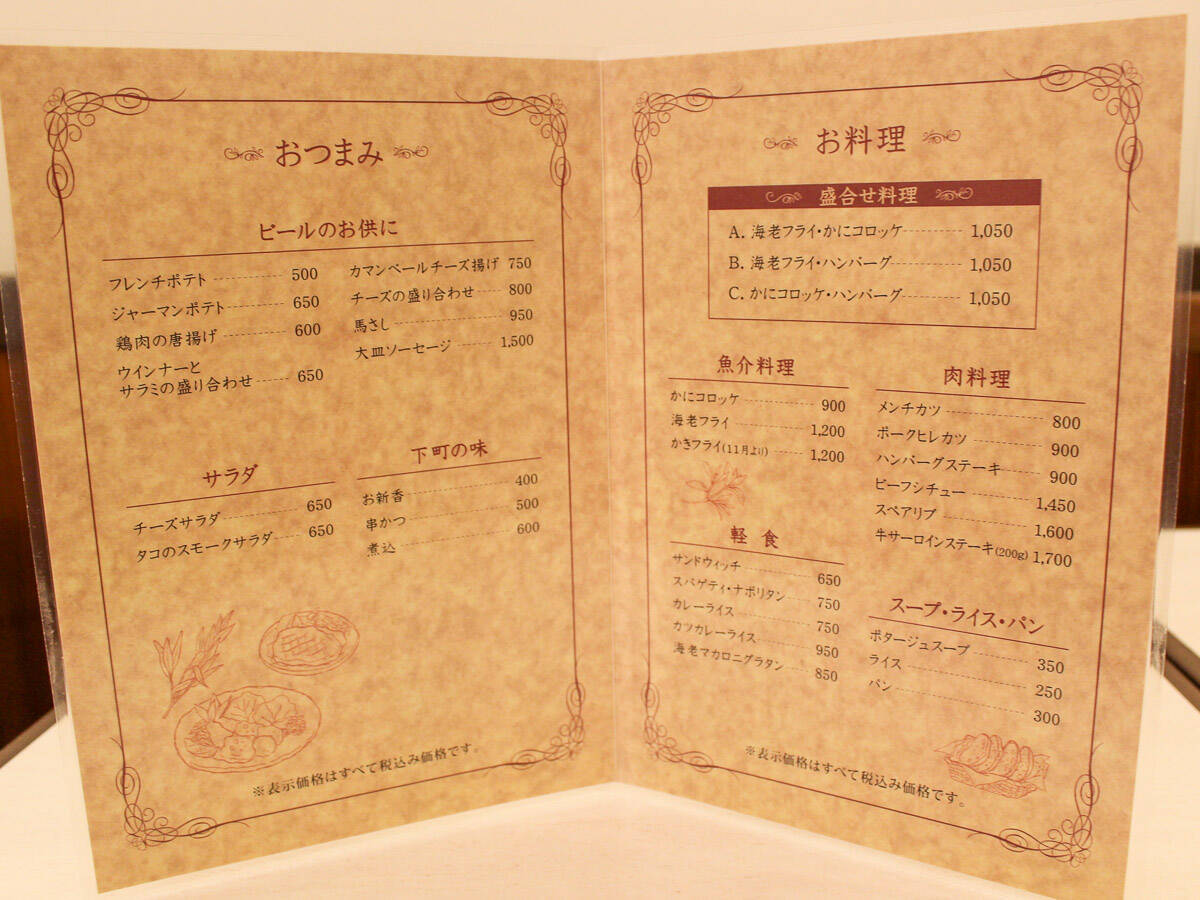 おつまみ
ビールのお供に
フレンチポテト 500
ジャーマンポテト 650
鶏肉の唐揚げ 600
ウインナーと
サラミの盛り合わせ 650
カマンベールチーズ揚げ 750
チーズの盛り合わせ 800
馬さし 950
大皿ソーセージ 1,500
サラダ
チーズサラダ 650
タコのスモークサラダ 650
下町の味
お新香 400
串かつ 500
煮込 600
※表示価格はすべて税込み価格です。
お料理
盛合せ料理
A. 海老フライ・かにコロッケ 1,050
B. 海老フライ・ハンバーグ 1,050
C. かにコロッケ・ハンバーグ 1,050
魚介料理
かにコロッケ 900
海老フライ 1,200
かきフライ(11月より) 1,200
軽食
サンドウィッチ 650
スパゲティ・ナポリタン 750
カレーライス 750
カツカレーライス 950
海老マカロニグラタン 850
肉料理
メンチカツ 800
ポークヒレカツ 900
ハンバーグステーキ 900
ビーフシチュー 1,450
スペアリブ 1,600
牛サーロインステーキ(200g) 1,700
スープ・ライス・パン
ポタージュスープ 350
ライス 250
パン 300
※表示価格はすべて税込み価格です。